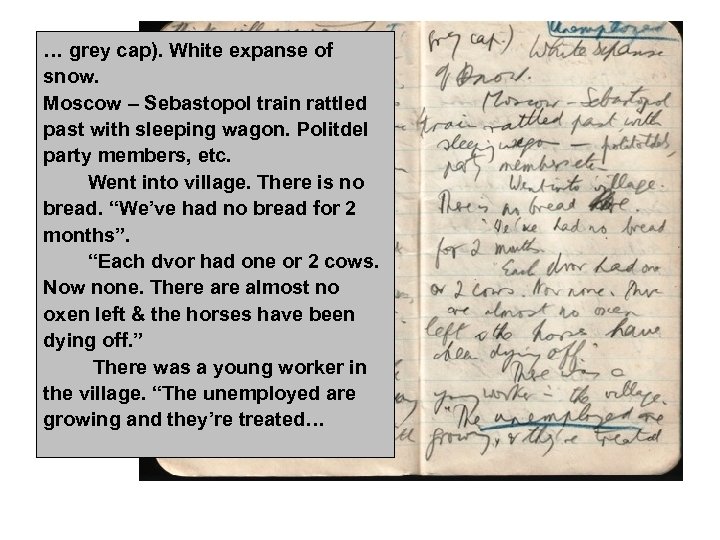 … grey cap). White expanse of
snow.
Moscow – Sebastopol train rattled
past with sleeping wagon. Politdel
party members, etc.
Went into village. There is no
bread. “We’ve had no bread for 2
months”.
“Each dvor had one or 2 cows.
Now none. There are almost no
oxen left & the horses have been
dying off.”
There was a young worker in
the village. “The unemployed are
growing and they’re treated…
Unemployed
grey cap.) White expanse
of snow.
Moscow – Sebastopol
train rattled past with
sleeping wagon –
party members etc
Went into village.
There is no bread
"We've had no bread
for 2 months
Each dvor had one
or 2 cows. Now none. There
are almost no oxen
left & the horses have
been dying off."
There was a
young worker in the village.
"The unemployed are
growing, & they're treated